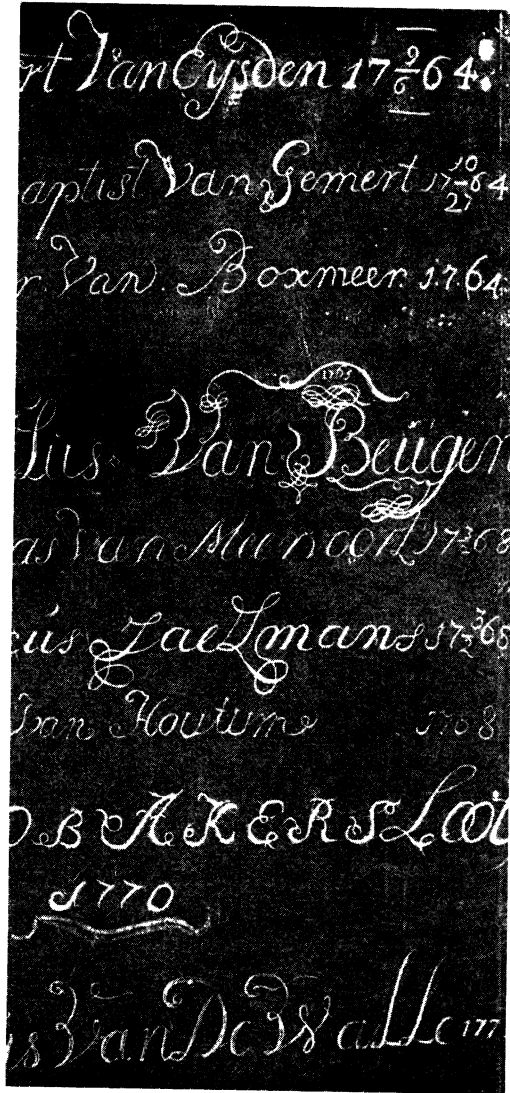 rt Van Eijsden 17 9/6 64.
aptist Van Gemert 17 10/27 64
r. Van. Boxmeer. 1.7.64.
1765
Van Beügen
as Van 17 68
cús Zaelmans 17 3/2 68
Van Houtum 1768
OB AKERS Looij
1770
is Van De Walle 177